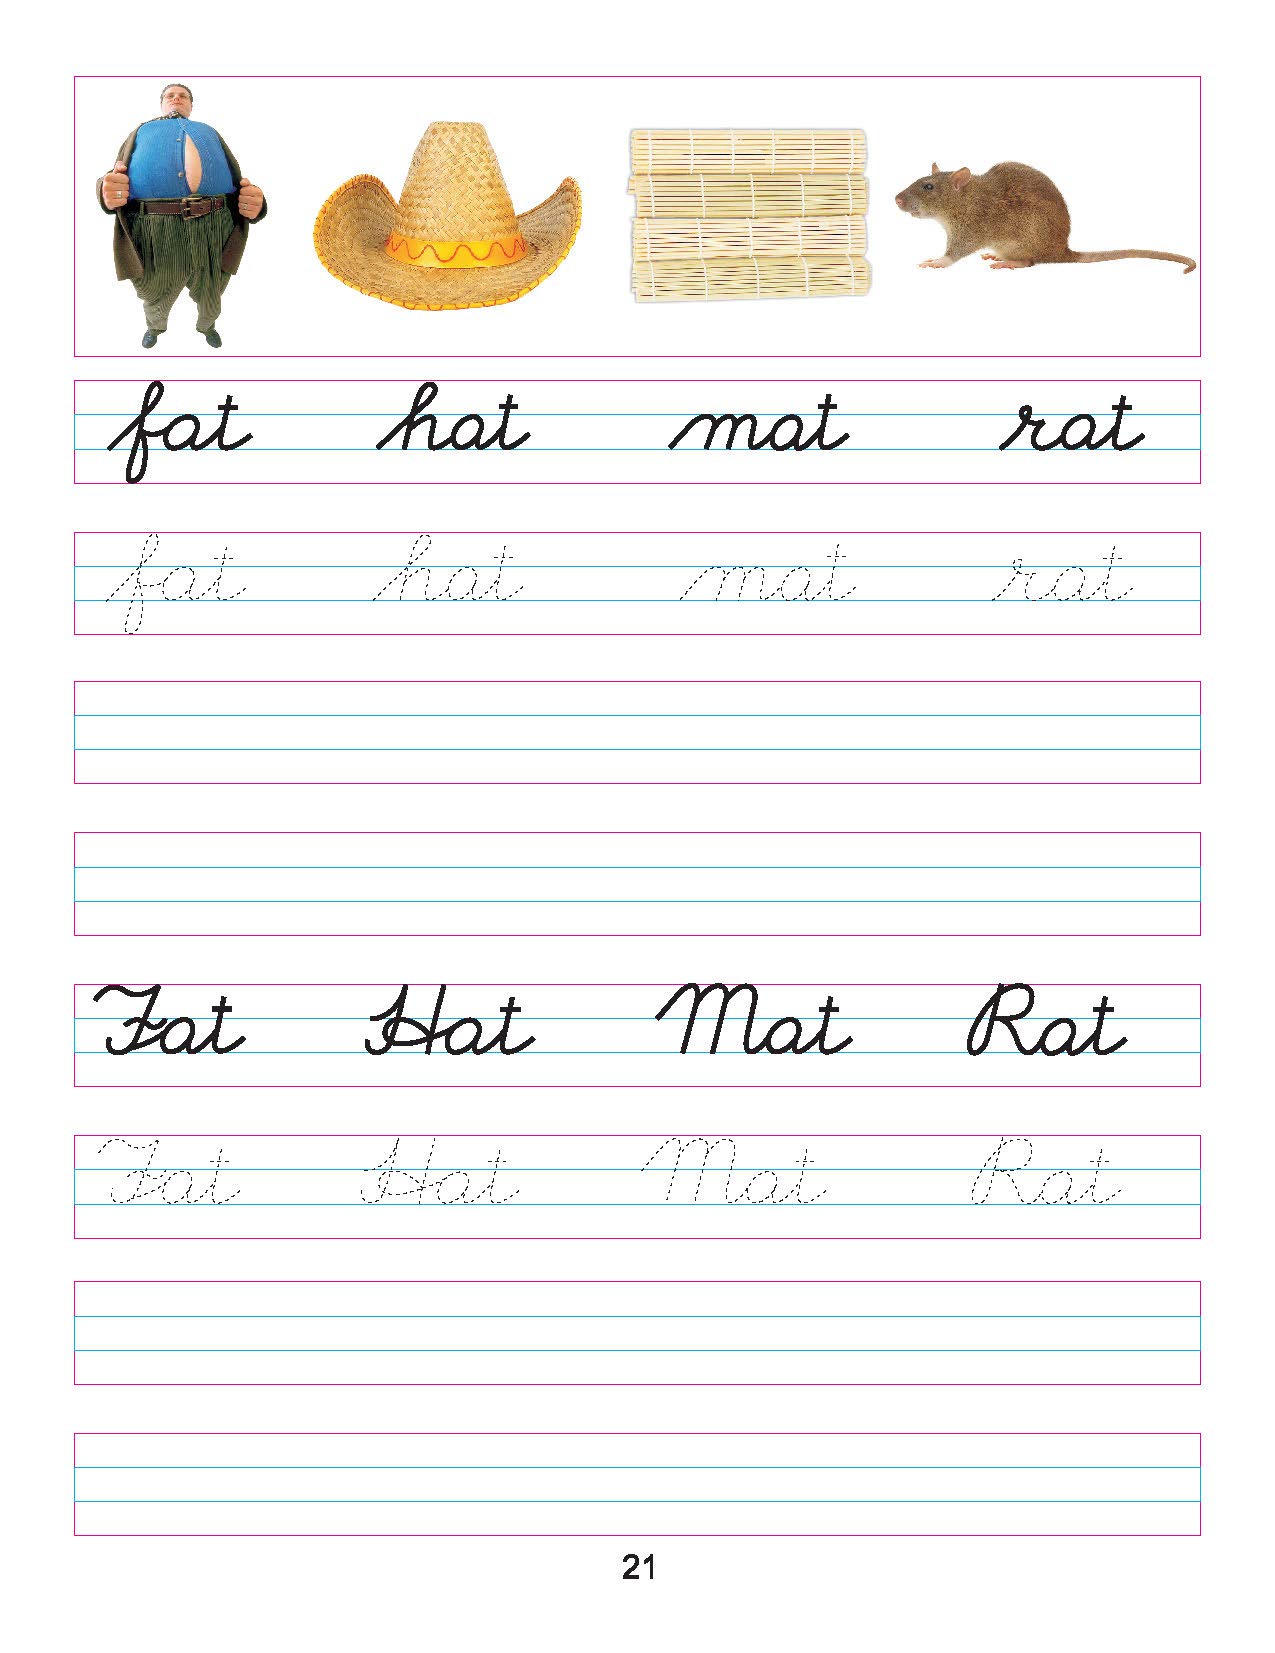 fat hat mat rat
fat hat mat rat
Fat Hat Mat Rat
Fat Hat Mat Rat
21